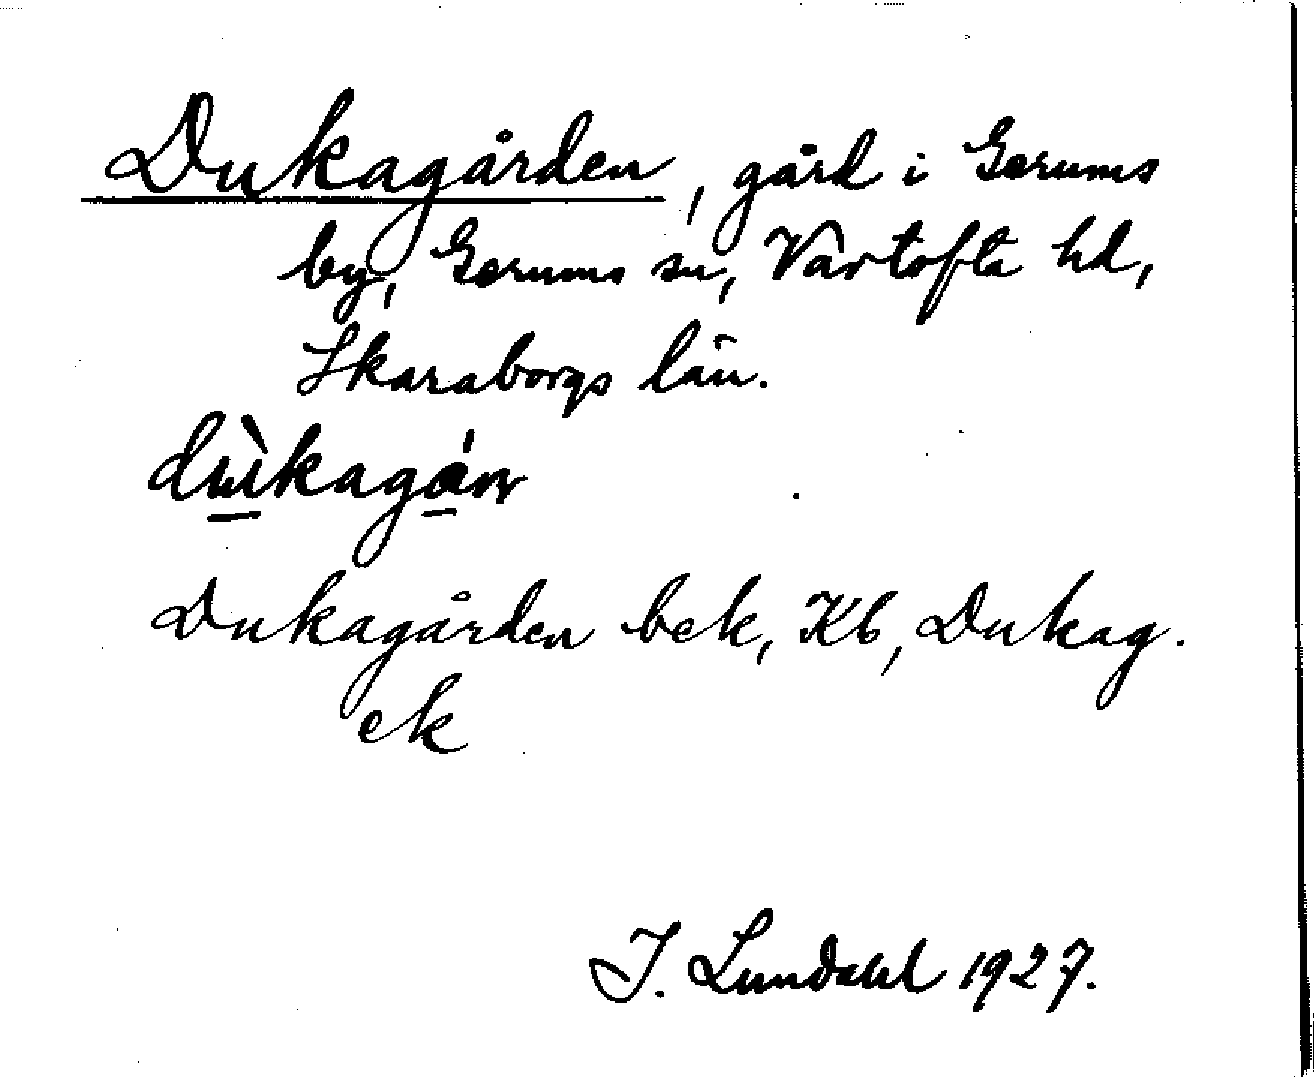 Dukagården, gård i Gerums
by, Gerums sn, Vartofta hd,
Skaraborgs län.
dùkagán
Dukagården bek, Kb, Dukag.
ek
I. Lundahl 1927.